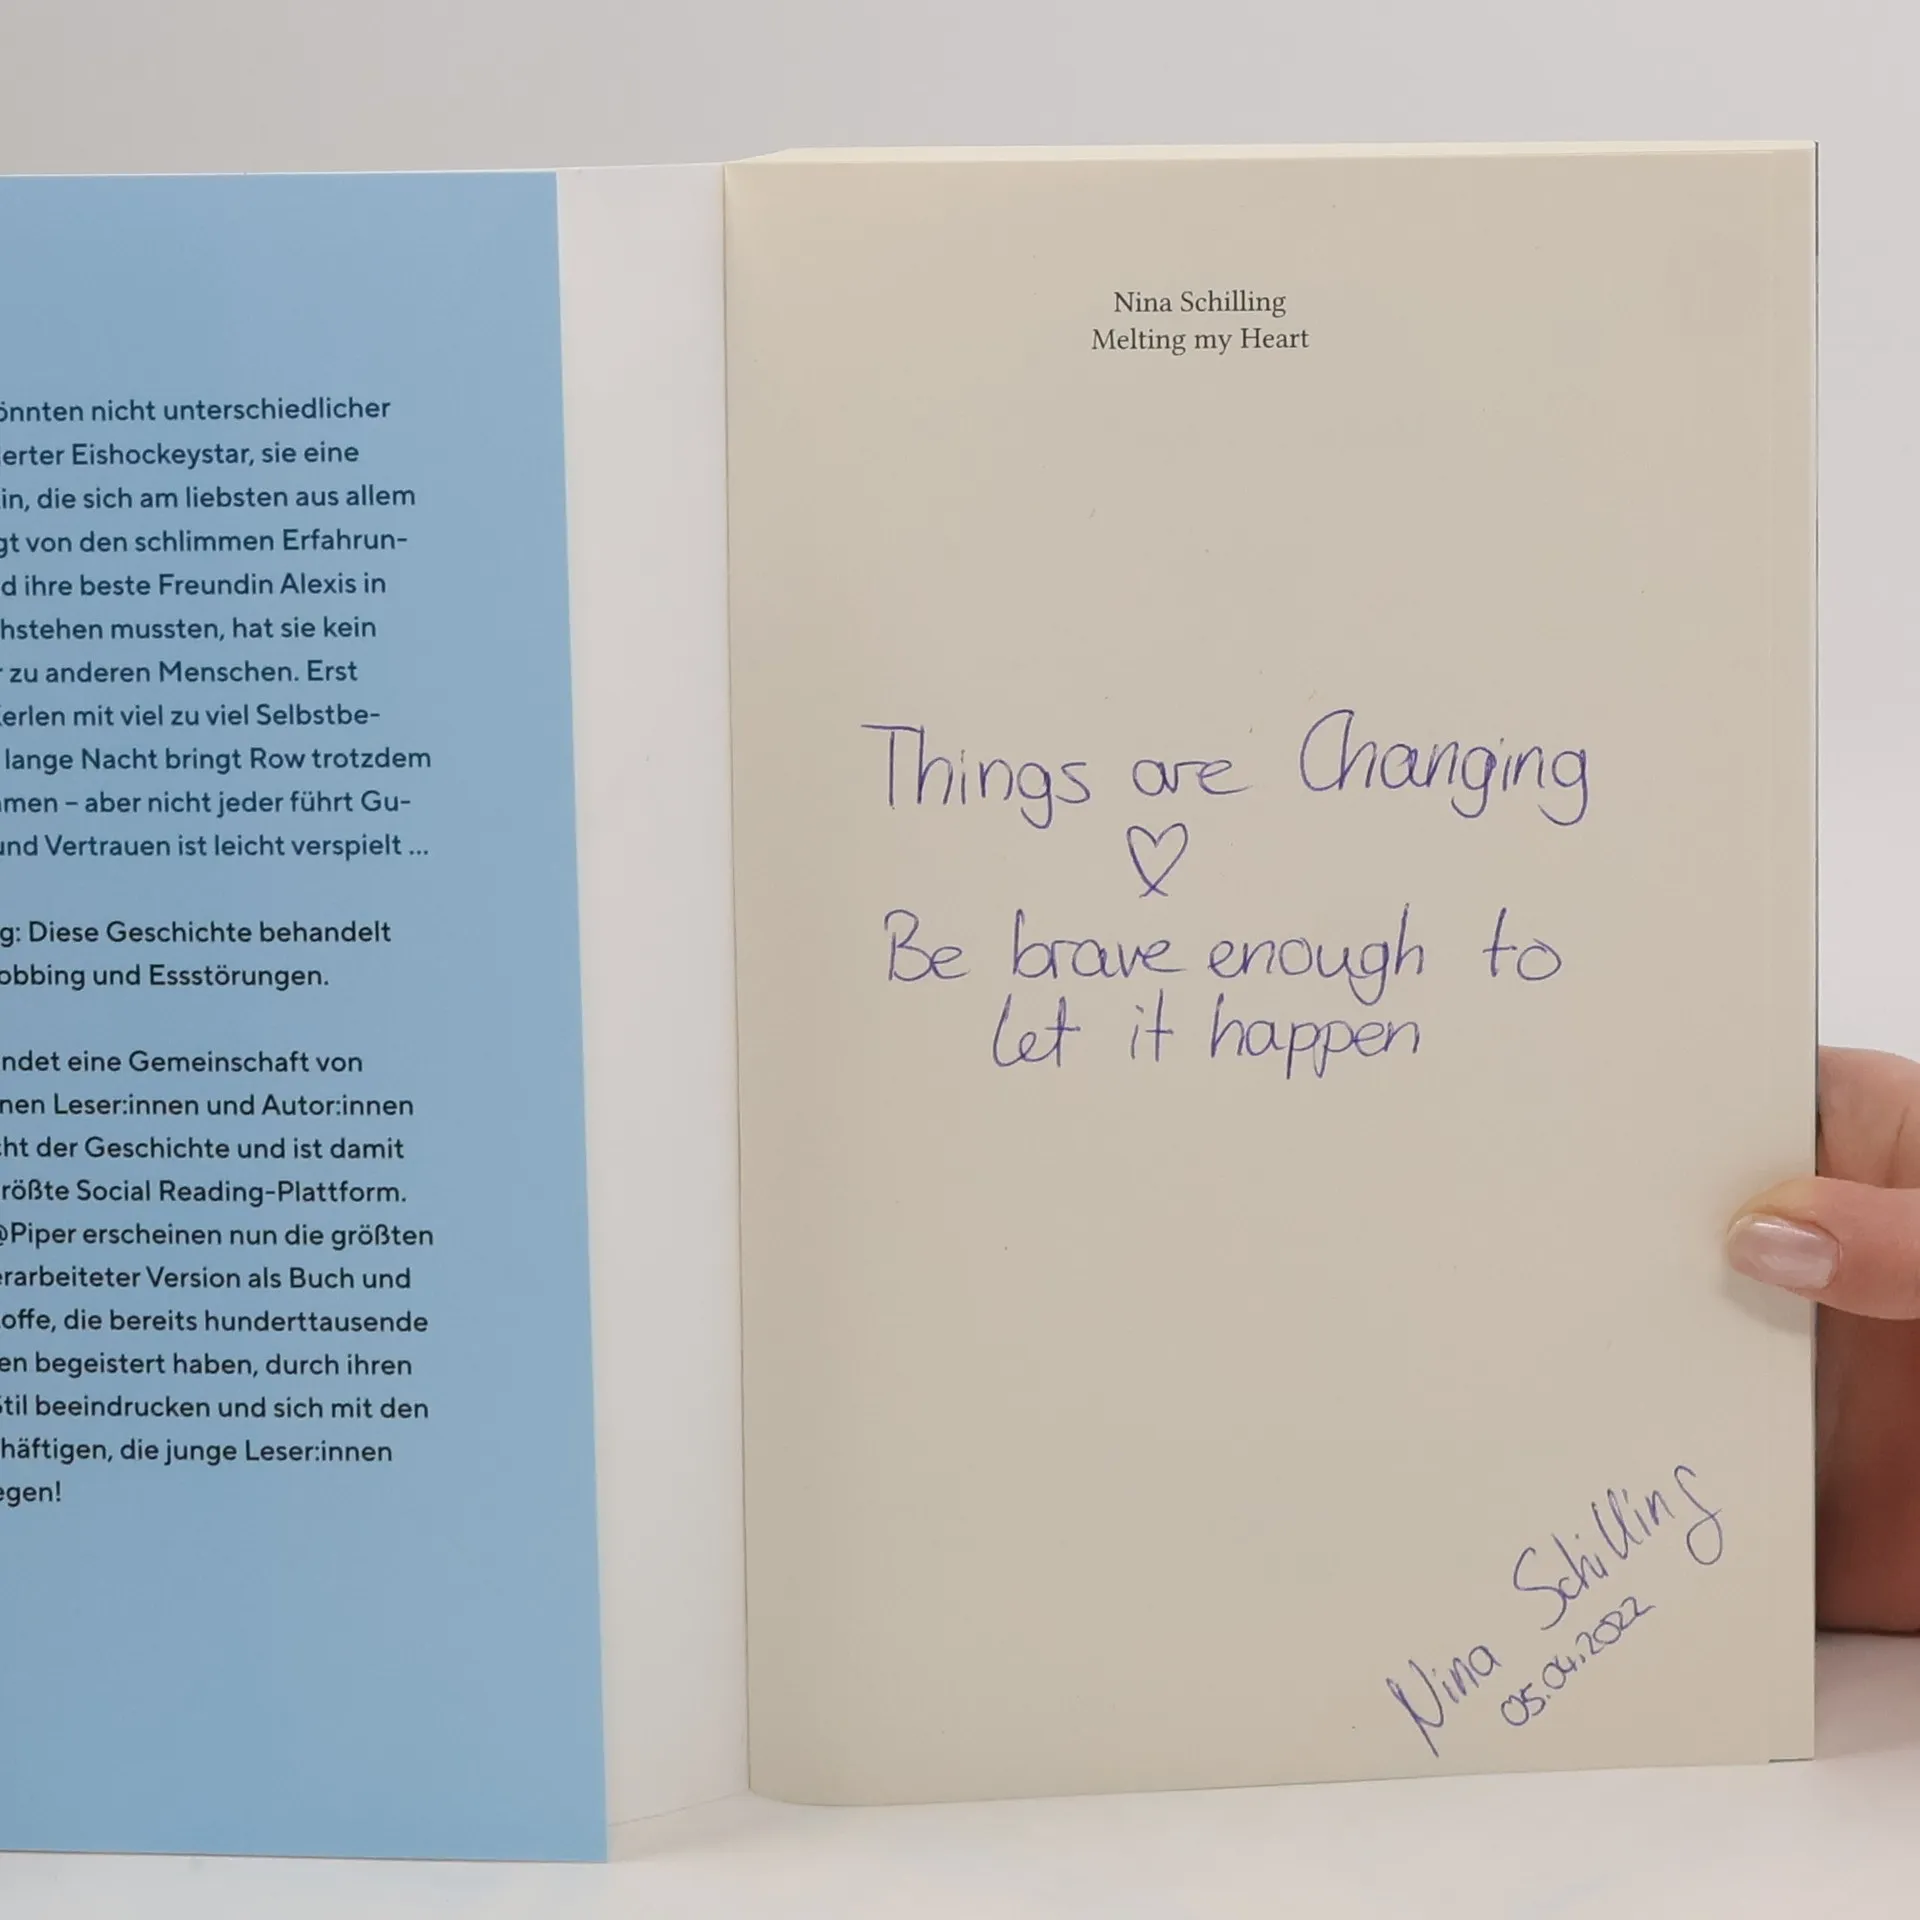 önnten nicht unterschiedlicher
erter Eishockeystar, sie eine
in, die sich am liebsten aus allem
gt von den schlimmen Erfahrun-
d ihre beste Freundin Alexis in
hstehen mussten, hat sie kein
zu anderen Menschen. Erst
erlen mit viel zu viel Selbstbe-
lange Nacht bringt Row trotzdem
men – aber nicht jeder führt Gu-
und Vertrauen ist leicht verspielt ...
g: Diese Geschichte behandelt
obbing und Essstörungen.
ndet eine Gemeinschaft von
nen Leser:innen und Autor:innen
cht der Geschichte und ist damit
rößte Social Reading-Plattform.
@Piper erscheinen nun die größten
erarbeiteter Version als Buch und
offe, die bereits hunderttausende
en begeistert haben, durch ihren
Stil beeindrucken und sich mit den
häftigen, die junge Leser:innen
egen!
Nina Schilling
Melting my Heart
Things are Changing
Be brave enough to
let it happen
Nina Schilling
05.04.2022